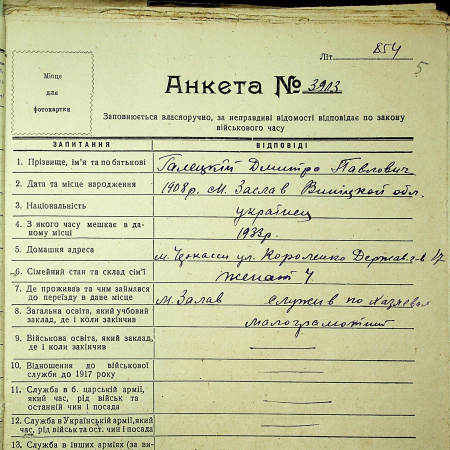 Літ. 854
5
Місце
для
фотокартки
Анкета № 3903
Заповнюється власноручно, за неправдиві відомості відповідає по закону
військового часу
ЗАПИТАННЯ ВІДПОВІДІ
1. Прізвище, ім'я та по батькові Галецкій Дмитро Павлович
2. Дата та місце народження 1908 р. м. Заслав Виницкой обл.
3. Національність украінец
4. З якого часу мешкає в да-
ному місці 1933 р.
5. Домашня адреса м. Черкасси ул. Короленко
6. Сімейний стан та склад сім'ї женат 4
7. Де проживав та чим займався
до переїзду в дане місце м. Залав служив по
8. Загальна освіта, який учбовий
заклад, де і коли закінчив малограмотний
9. Військова освіта, який заклад,
де і коли закінчив
10. Відношення до військової
служби до 1917 року
11. Служба в б. царській армії,
який час, рід військ та
останній чин і посада
12. Служба в Українській армії, який
час, рід військ та ост. чин і посада
13. Служба в інших арміях (за ви-